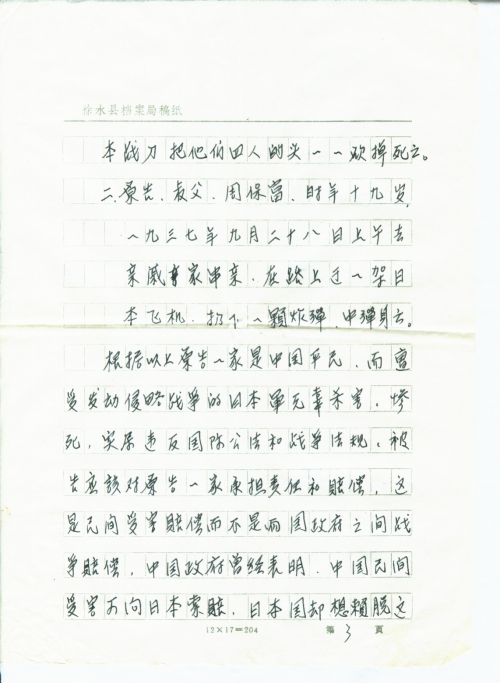 徐水县档案局稿纸
本战刀把他们四人的头一一砍掉死亡。
二.原告.叔父.周保富.时年十九岁.
一九三七年九月二十八日上午去
亲戚家串亲.在路上过一架日
本飞机.扔下一颗炸弹.中弹身亡。
根据以上原告一家是中国平民.而遭
受发动侵略战争的日本军无辜杀害.惨
死.实属违反国际公法和战争法规.被
告应该对原告一家承担责任和赔偿.这
是民间受害赔偿而不是两国政府之间战
争赔偿.中国政府曾经表明.中国民间
受害可向日本索赔.日本国却想赖脱这
12×17=204 第 3 页